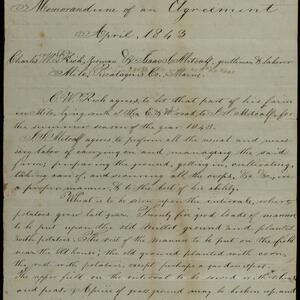 Memorandum of an Agreement
April, 1843
Charles W. Rich, Yeoman & Isaac S. Metcalf, gentleman & laborer
Milo, Piscataquis Co. Maine.
C. W. Rich agrees to let that part of his farm
in Milo, lying with to I. S. Metcalf, for
the summer season of the year 1843.
I. S. Metcalf agrees to perform all the usual and neces-
sary labor of carrying on and managing the said
farm; preparing the ground, getting in, cultivating,
taking care of, and securing all the crops, &c &c, in
a proper manner, & to the best of his ability.
What is to be sown upon the intervale, where
potatoes grew last year. Twenty five good loads of manure
to be put upon the old ground and planted
with potatoes. The rest of the manure to be put on the field
near the old house; the old ground planted with corn,
the rest with potatoes, except perhaps a garden spot.
The upper field on the intervale to be sowed with
and peas. A piece of ground may be broken up and